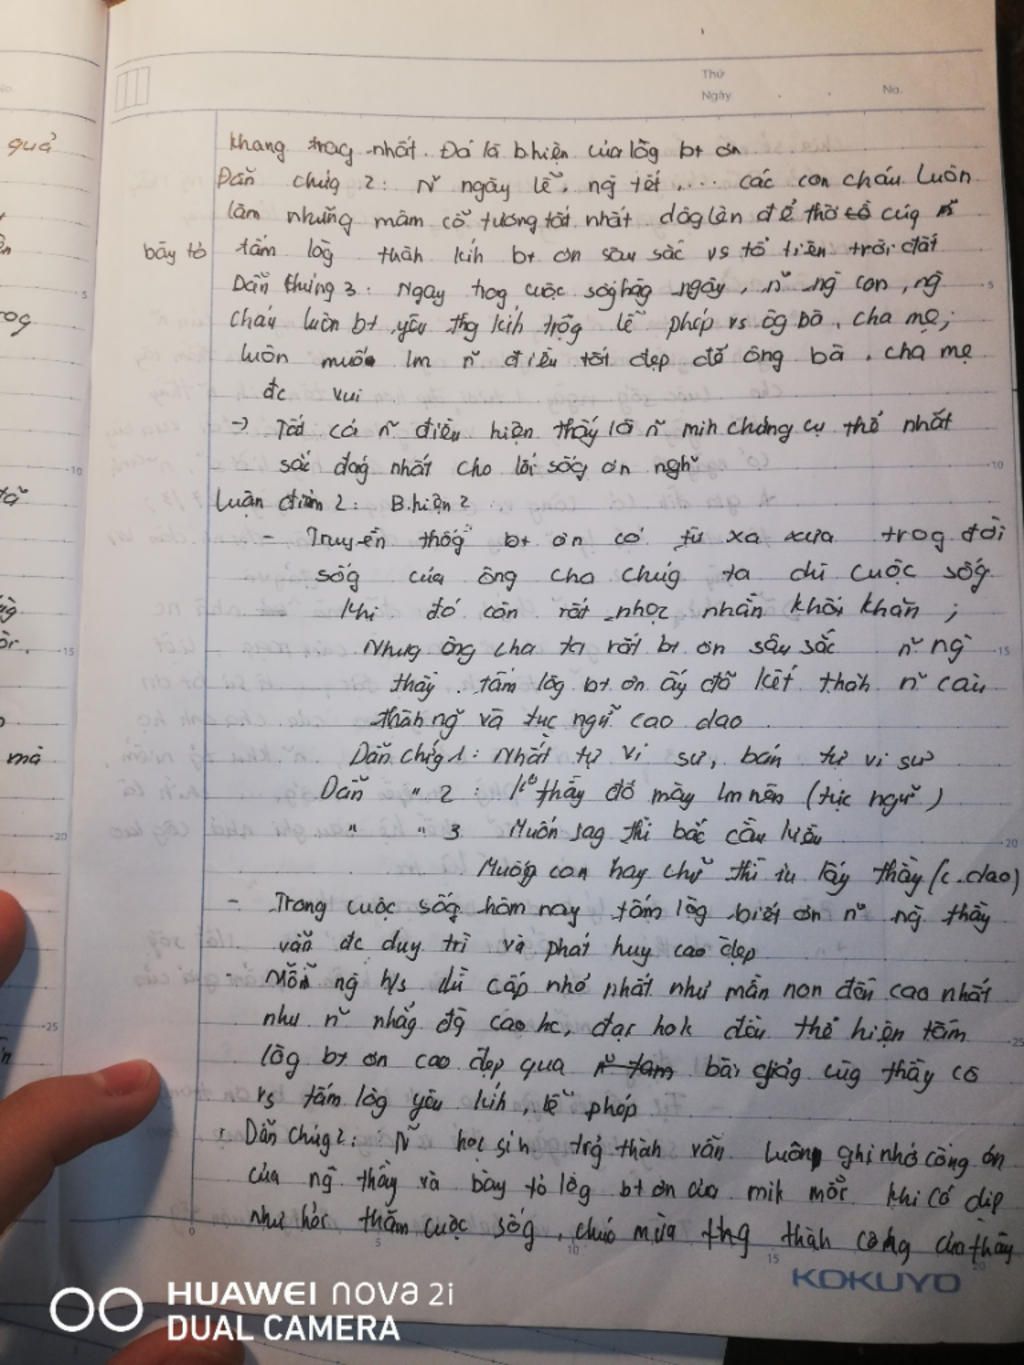 Thứ
Ngày
No.
No.
quả
khang trag nhất. Đó là b.hiện của lòg bt ơn
Dẫn chứg 2: N~ ngày lễ, ng tết, ... các con cháu luôn
làm những mâm cỗ tươg tốt nhất dâg lên để thờ cúg
bày tỏ tấm lòg thàh kíh bt ơn sâu sắc vs tổ tiên trời đất
Dẫn chứng 3: Ngay trog cuộc sốg hàg ngày, n~ ng con, ng
cháu luôn bt yêu thg kíh trọg lễ phép vs ôg bà, cha mẹ;
luôn muốn lm n~ điều tốt đẹp để ông bà, cha mẹ
đc vui
-> Tất cả n~ điều hiện thấy là n~ mih chứng cụ thể nhất
sắc đág nhất cho lối sốg ơn ngh~
Luận điểm 2: B.hiện 2
- Truyền thốg bt ơn có từ xa xưa trog đời
sốg của ông cha chúg ta dù cuộc sốg
khi đó còn rất nhọc nhằn khói khăn;
Nhưg ông cha ta rất bt ơn sâu sắc n~ ng
thầy. tấm lòg bt ơn ấy đã kết thàh n~ câu
thàh ng~ và tục ngữ cao dao
Dẫn chứg 1: Nhất tự vi sư, bán tự vi sư
Dẫn " 2: Ko thầy đố mày lm nên (tục ngữ)
" " 3 Muốn sag thì bắc cầu kiều
Muốn con hay chữ thì iu lấy thầy (c.dao)
- Trong cuộc sốg hôm nay tấm lòg biết ơn n~ ng thầy
vẫn đc duy trì và phát huy cao đẹp
- Mỗi ng h/s dù cấp nhỏ nhất như mần non đến cao nhất
như n~ nhắg độ cao hc, đại hok đều thể hiện tấm
lòg bt ơn cao đẹp qua n~ tam bài giảg cùg thầy cô
vs tấm lòg yêu kíh, lễ phép
Dẫn chứg 2: N~ học sih trg thàh vẫn luôn ghi nhớ công ơn
của ng thầy và bày tỏ lòg bt ơn của mìk mỗi khi có dịp
như hỏi thăm cuộc sốg, chúc mừg thg thàh công của thầy
mà
5
10
15
20
25
5
10
15
20
25
0
5
10
15
20
KOKUYO
HUAWEI nova 2i
DUAL CAMERA